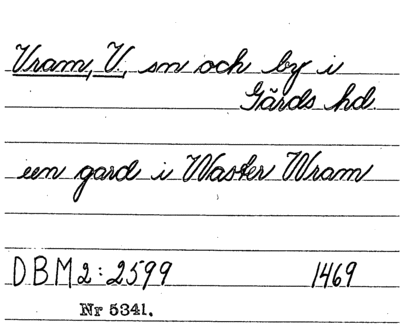 Vram, V., sn och by i
Gärds hd
een gard i Waster Wram
DBM2:2599 1469
Nr 5341.